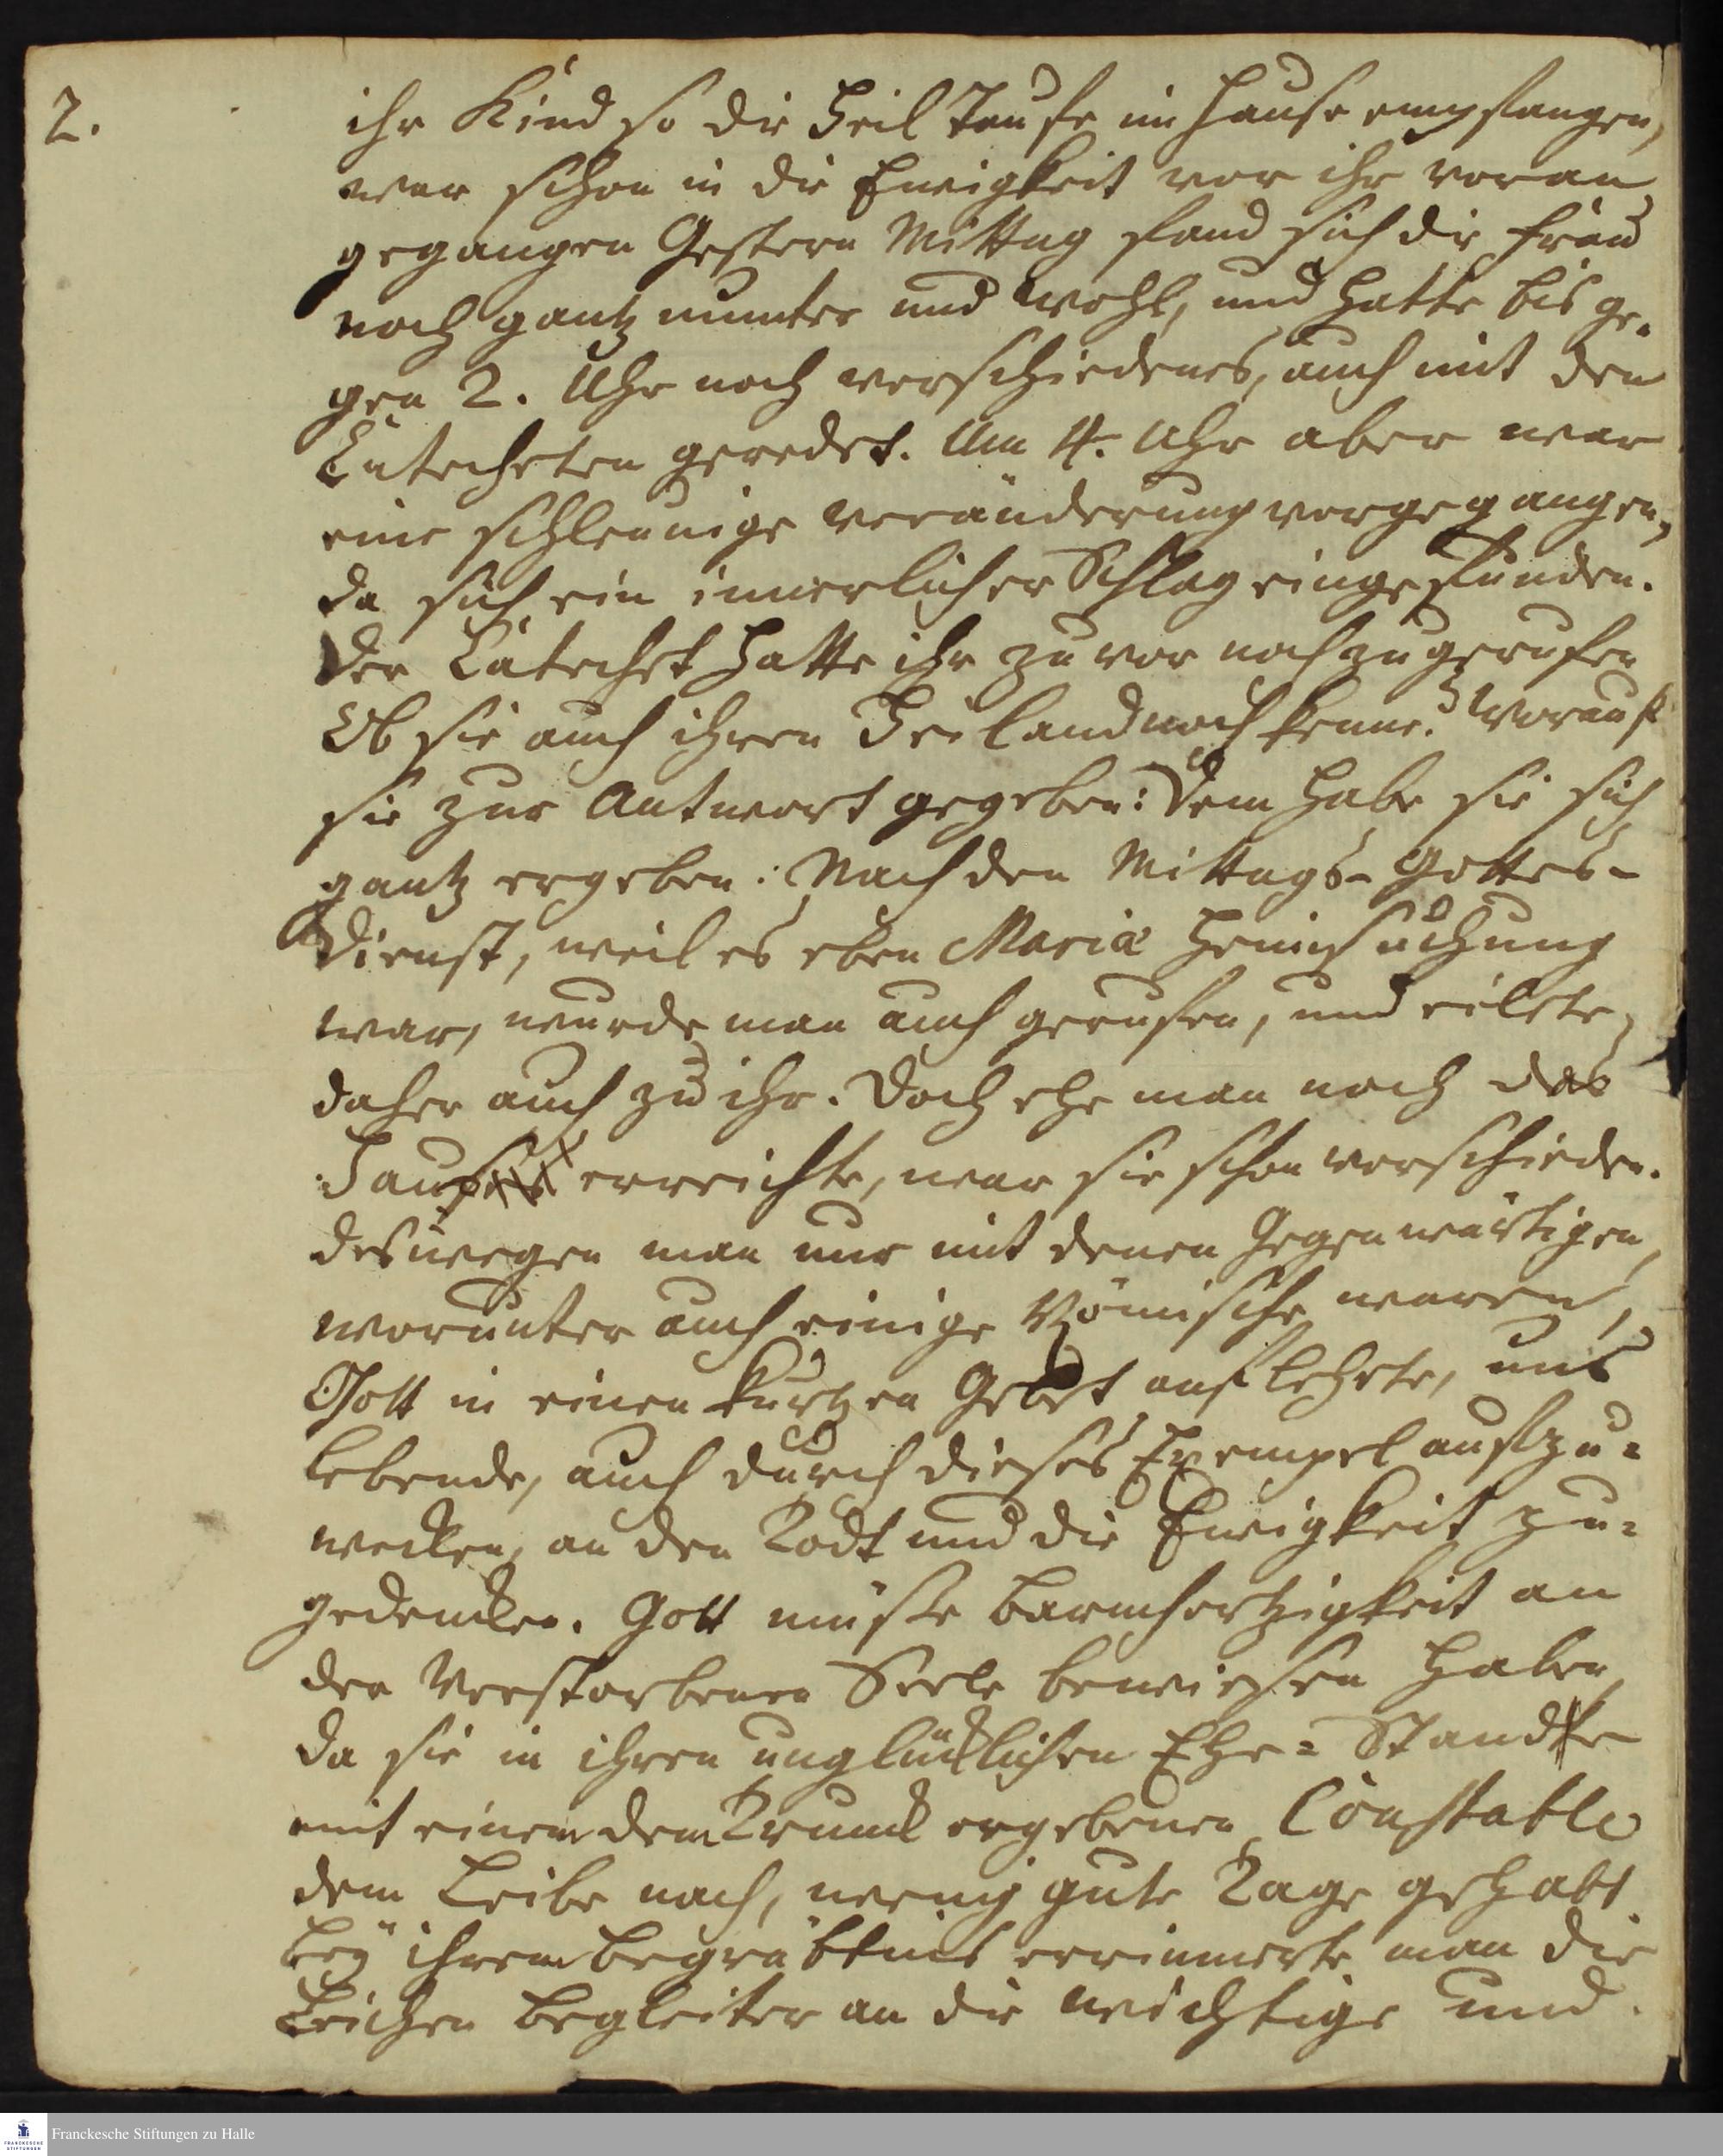 2.
ihr Kind so die Heil Taufe im Hause empfangen,
war schon in die Ewigkeit vor ihr voran
gegangen Gestern Mittag fand sich die Frau
noch gantz munter und wohl, und hatte bis ge-
gen 2. Uhr noch verschiedenes, auch mit den
Catecheten geredet. Um 4. Uhr aber war
eine schleunige Veränderung vorgegangen,
da sich ein innerlicher Schlag eingefunden.
Der Catechet hatte ihr zuvor noch zugerufen
Ob sie auch ihren Heiland noch kenne? Worauf
sie zur Antwort gegeben: Dem habe sie sich
gantz ergeben. Nach den Mittags-Gottes-
Dienst, weil es eben Mariä Heimsuchung
war, wurde man auch gerufen, und eilete,
daher auch zu ihr. Doch ehe man noch das
Haus erreichte, war sie schon verschieden.
deswegen man nur mit denen Gegenwärtigen,
worunter auch einige Römische waren,
Gott in einen kurtzen Gebet anflehete, uns
lebende, auch durch dieses Exempel aufzu-
wecken, an den Todt und die Ewigkeit zu-
gedencken. Gott müsse Barmhertzigkeit an
der Verstorbenen Seele bewiesen haben,
da sie in ihren unglücklichen Ehe-Stande
mit einem dem Trunck ergebenen Constable
dem Leibe nach, wenig gute Tage gehabt
Bey ihrem Begräbtnis errinnerte man die
Leichen Begleiter an die wichtige und
Franckesche Stiftungen zu Halle
FRANCKESCHE
STIFTUNGEN